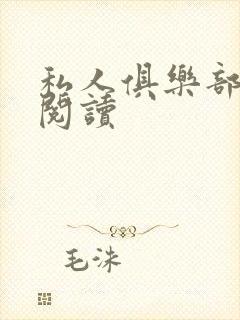 私人俱樂部
閱讀
毛洙